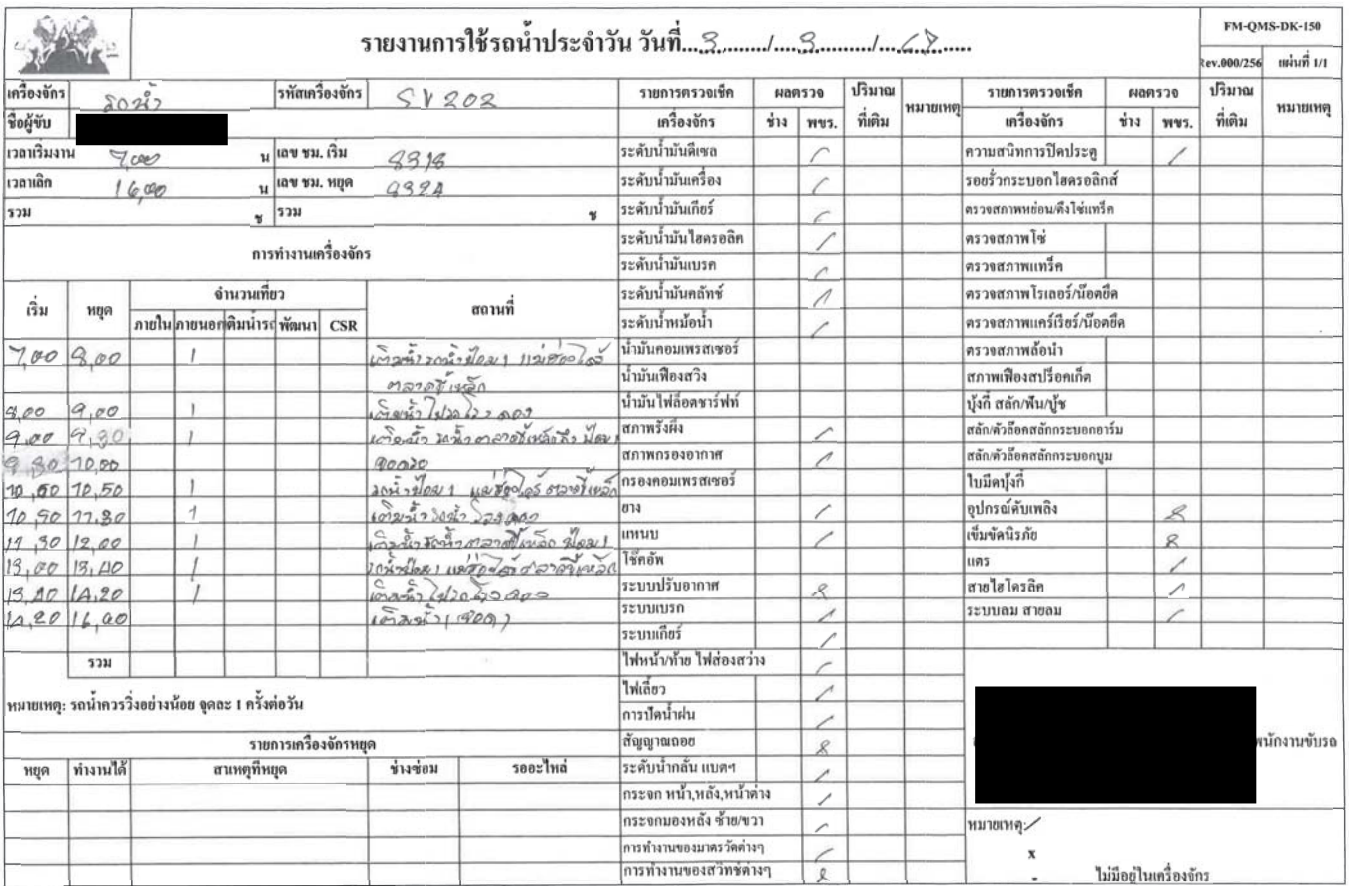 รายงานการใช้รถน้ำประจำวัน วันที่...3.../...9.../...67...
FM-QMS-DK-150
Rev.000/256 แผ่นที่ 1/1
เครื่องจักร รถน้ำ รหัสเครื่องจักร SV202
ชื่อผู้ขับ
เวลาเริ่มงาน 7,00 น เลข ชม. เริ่ม
เวลาเลิก 16,00 น เลข ชม. หยุด
รวม ช รวม ช
การทำงานเครื่องจักร
เริ่ม หยุด จำนวนเที่ยว สถานที่
ภายใน ภายนอก เติมน้ำรถ พัฒนา CSR
7,00 8,00 1 เติมน้ำ รถน้ำป้อม 1
ตลาดขี้เหล็ก
8,00 9,00 1 เติมน้ำ
9,00 9,30 1 เติมน้ำ รถน้ำ ตลาดขี้เหล็ก ป้อม 1
9,30 10,00
10,00 10,50 1 รถน้ำป้อม 1 ตลาดขี้เหล็ก
10,50 11,30 1 เติมน้ำ รถน้ำ
11,30 12,00 1 เติมน้ำ รถน้ำ ตลาดขี้เหล็ก ป้อม 1
13,00 13,40 1 รถน้ำป้อม 1 ตลาดขี้เหล็ก
13,40 14,20 1 เติมน้ำ
14,20 16,00 เติมน้ำ (จอด)
รวม
หมายเหตุ: รถน้ำควรวิ่งอย่างน้อย จุดละ 1 ครั้งต่อวัน
รายการเครื่องจักรหยุด
หยุด ทำงานได้ สาเหตุที่หยุด ช่างซ่อม รออะไหล่
รายการตรวจเช็ค เครื่องจักร ผลตรวจ ช่าง พขร. ปริมาณ ที่เติม หมายเหตุ
ระดับน้ำมันดีเซล /
ระดับน้ำมันเครื่อง /
ระดับน้ำมันเกียร์ /
ระดับน้ำมันไฮดรอลิค /
ระดับน้ำมันเบรค /
ระดับน้ำมันคลัทช์ /
ระดับน้ำหม้อน้ำ /
น้ำมันคอมเพรสเซอร์
น้ำมันเฟืองสวิง
น้ำมันไฟล็อตชาร์ฟท์
สภาพรังผึ้ง /
สภาพกรองอากาศ /
กรองคอมเพรสเซอร์
ยาง /
แหนบ /
โช๊คอัพ
ระบบปรับอากาศ
ระบบเบรก /
ระบบเกียร์ /
ไฟหน้า/ท้าย ไฟส่องสว่าง /
ไฟเลี้ยว /
การปัดน้ำฝน /
สัญญาณถอย
ระดับน้ำกลั่น แบตฯ /
กระจก หน้า,หลัง,หน้าต่าง /
กระจกมองหลัง ซ้าย/ขวา /
การทำงานของมาตรวัดต่างๆ /
การทำงานของสวิทช์ต่างๆ
รายการตรวจเช็ค เครื่องจักร ผลตรวจ ช่าง พขร. ปริมาณ ที่เติม หมายเหตุ
ความสนิทการปิดประตู /
รอยรั่วกระบอกไฮดรอลิกส์
ตรวจสภาพหย่อน/ตึงโซ่แทร็ค
ตรวจสภาพโซ่
ตรวจสภาพแทร็ค
ตรวจสภาพโรเลอร์/น๊อตยึด
ตรวจสภาพแคร์เรียร์/น๊อตยึด
ตรวจสภาพล้อนำ
สภาพเฟืองสปร็อคเก็ต
บุ้งกี๋ สลัก/ฟัน/บู้ช
สลัก/ตัวล๊อคสลักกระบอกอาร์ม
สลัก/ตัวล๊อคสลักกระบอกบูม
ใบมีดบุ้งกี๋
อุปกรณ์ดับเพลิง
เข็มขัดนิรภัย
แตร /
สายไฮโดรลิค /
ระบบลม สายลม /
พนักงานขับรถ
หมายเหตุ: /
x
- ไม่มีอยู่ในเครื่องจักร